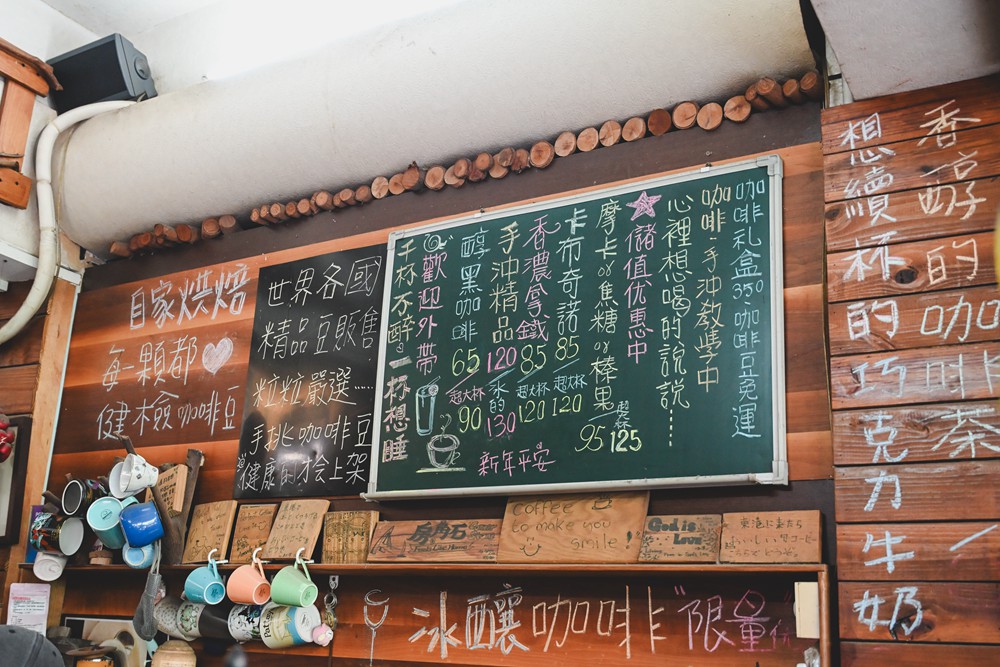 自家烘焙
每一顆都
健檢咖啡豆
世界各國
精品豆販售
粒粒嚴選......
手挑咖啡豆
健康的才會上架
咖啡禮盒350 咖啡豆免運
咖啡手沖教學中
心裡想喝的說說......
儲值優惠中
摩卡or焦糖or榛果
95 125
卡布奇諾
85
超大杯
120
香濃拿鐵
85
超大杯
120
手沖精品
120
冰的
130
醇黑咖啡
65
超大杯
90
歡迎外帶
千杯不醉一杯想睡
新年平安
香醇好的咖啡茶
想續杯的巧克力牛奶
房角石
coffee
to make you
smile!
God is
Love
冰釀咖啡"限量